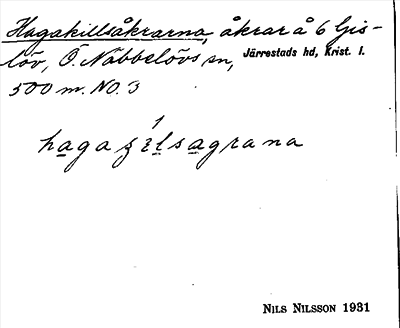 Hagakillsåkrarna, åkrar å 6 Gis-
löv, Ö. Nöbbelövs sn, Järrestads hd, Krist. l.
500 m. NO. 3
1
NILS NILSSON 1931